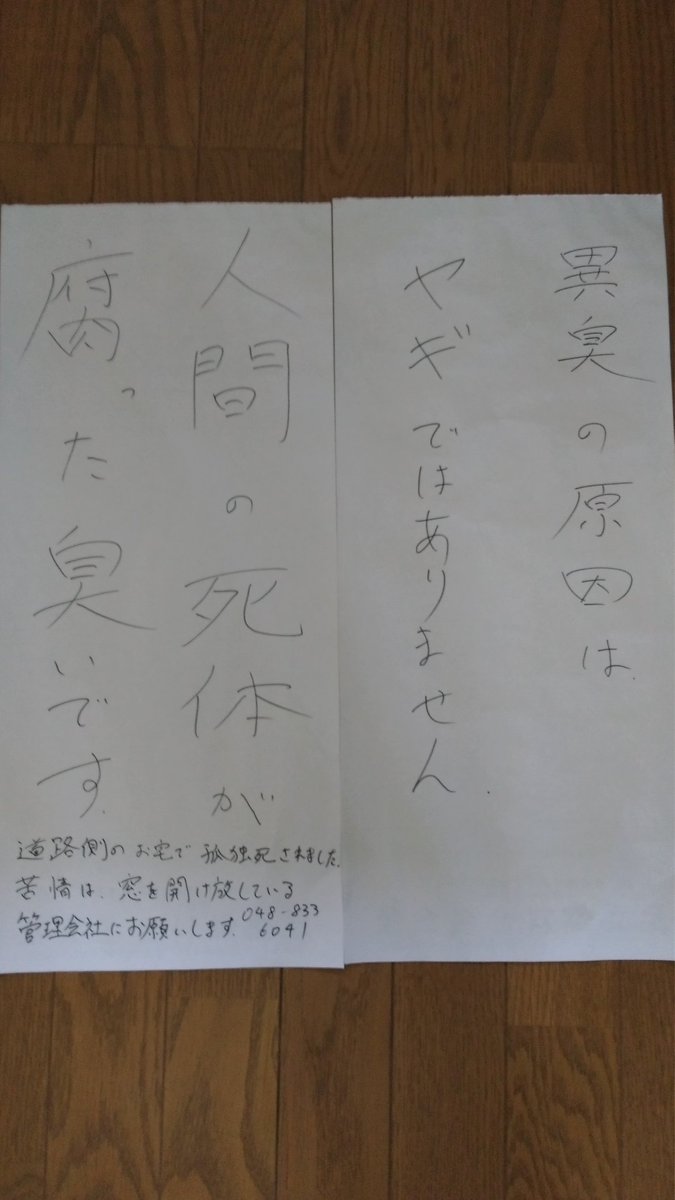 異臭の原因は
ヤギではありません.
人間の死体が
腐った臭いです.
道路側のお宅で孤独死されました.
苦情は、窓を開け放している
管理会社にお願いします.
048-833
6041